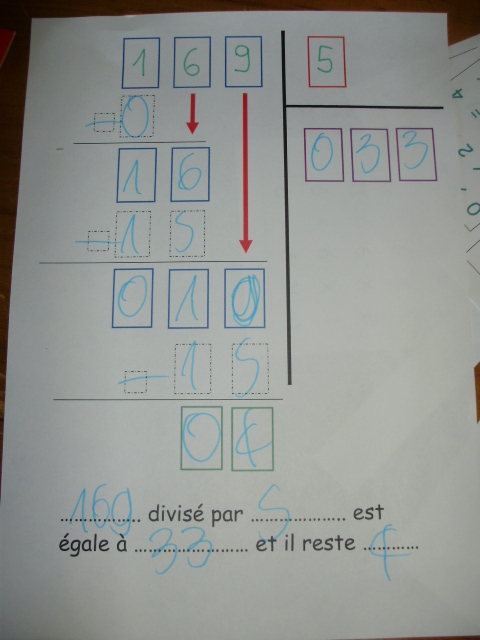 1 6 9 5
- 0
0 3 3
1 6
- 1 5
0 1 9
- 1 5
0 4
169 divisé par 5 est
égale à 33 et il reste 4